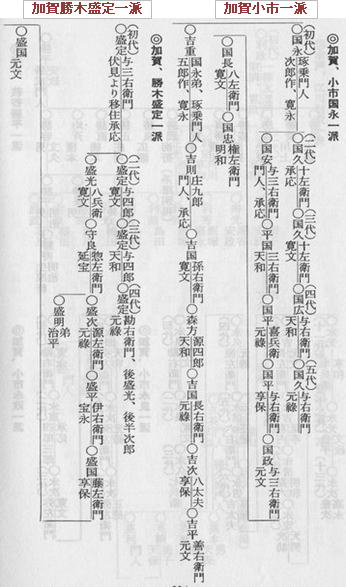 加賀勝木盛定一派
加賀小市一派
◎加賀、小市国永一派
(初代)○国永 琢乗門人 次郎作、寛永
(二代)○国久 十左衛門 承応 (三代)○国久 十左衛門 寛文 (四代)○国広 与右衛門 天和 (五代)○国久 与右衛門 元禄
○国安 与三右衛門 門人、承応 ○平国 三右衛門 天和 ○国平 喜兵衛 元禄 ○国平 与右衛門 享保 ○国政 与三右衛門 元文
○国長 八左衛門 寛文 ○国忠 権左衛門 明和
○吉重 国永弟、琢乗門人 五郎作 寛永 ○吉則 庄九郎 門人、承応 ○吉国 孫右衛門 寛文 ○森方 源四郎 天和 ○吉国 長右衛門 元禄 ○吉次 八太夫 享保 ○吉平 善右衛門 元文
◎加賀、勝木盛定一派
(初代)○盛定 与三右衛門 伏見より移住承応 (二代)○盛定 与四郎 寛文 (三代)○盛定 与四郎 天和 (四代)○盛定 勘右衛門、後盛光、後半次郎 元禄
○盛光 八兵衛 寛文 ○守良 惣左衛門 延宝 ○盛次 源左衛門 元禄 ○盛平 伊右衛門 宝永 ○盛国 藤左衛門 享保
○盛明 弟 治平
○盛国 元文